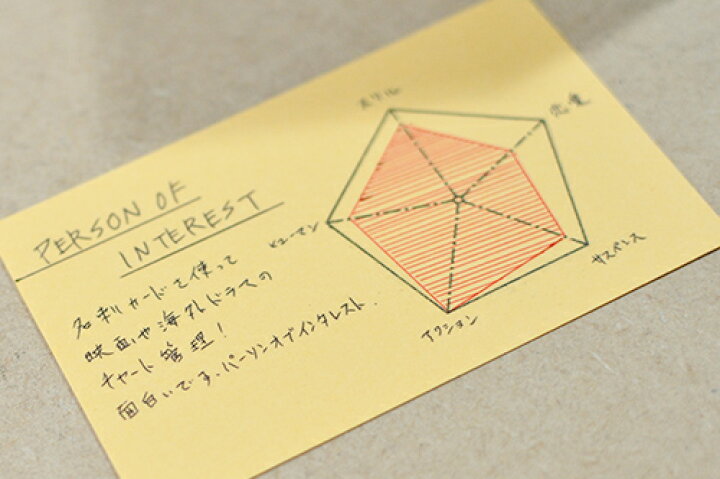 PERSON OF
INTEREST
名刺カードを使って
映画や海外ドラマの
チャート管理！
面白いです、パーソンオブインタレスト.
スリル
恋愛
サスペンス
アクション
ヒューマン